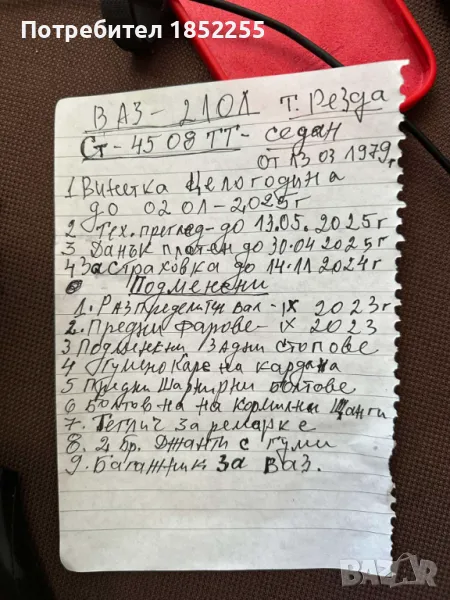 Потребител 1852255
ВАЗ - 2101 Т. Резда
Ст - 4508 ТТ - седан
от 13 03 1979г
1 Винетка Целогодина
до 02 01 - 2025г
2 Тех. преглед - до 13.05. 2025г
3 Данък платен до 30.04 2025г
4 Застраховка до 14.11 2024г
Подменени
1. Разпределител вал - IX 2023г
2. Предни фарове - IX 2023
3 Подменени задни стопове
4 Гумено каре на кардана
5 Предни шарнирни болтове
6 Болтове на кормилни щанги
7. Теглич за ремарке
8. 2 бр. Джанти с гуми
9. Багажник за ВАЗ.
BAZAR.BG